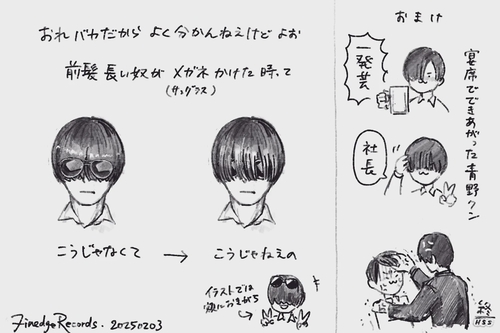 おれバカだから よく分かんねえけど よぉ
前髪長い奴が メガネかけた時って
(サングラス)
こうじゃなくて → こうじゃねえの
イラストでは
顔におきがち
Finedge Records. 20250203
おまけ
宴席でできあがった青野クン
一発芸
社長
終